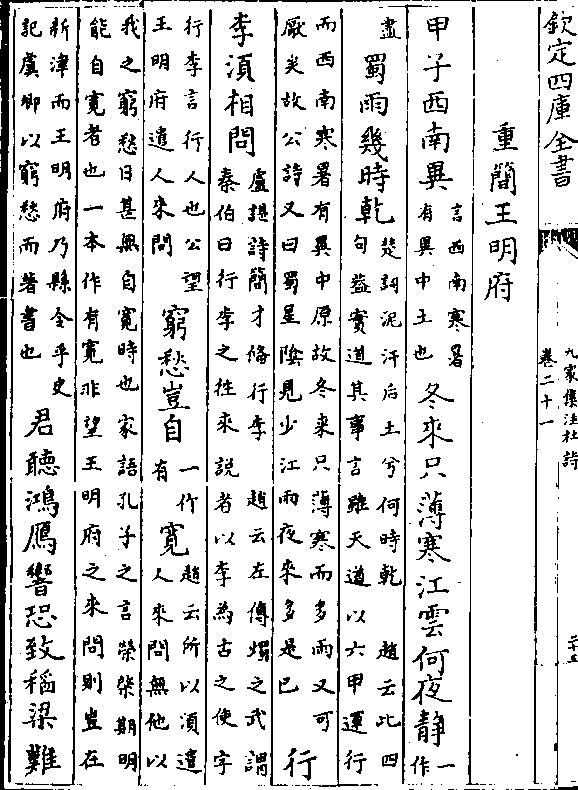 欽定四庫全書
九家集注杜詩
卷二十一
重簡王明府
甲子西南異
言西南寒暑
有異中土也
冬來只薄寒江雲何夜静
一作
盡
蜀雨幾時乾
楚詞泥汗后土兮何時乾 趙云此四
句蓋實道其事言雖天道以六甲運行
而西南寒暑有異中原故冬来只薄寒而多雨又可
厭矣故公詩又曰蜀星陰見少江雨夜來多是已
行
李湏相問
盧諶詩簡才備行李 趙云左傳燭之武謂
秦伯曰行李之徃來說者以李為古之使字
行李言行人也公望
王明府遣人來問
窮愁豈自
一作
有
寛
趙云所以湏遣
人來問無他以
我之窮愁日甚無自寛時也家語孔子之言榮棨期明
能自寛者也一本作有寛非望王明府之来問則豈在
新津而王明府乃縣令乎史
記虞卿以窮愁而著書也
君聽鴻鴈響恐致稻粱難